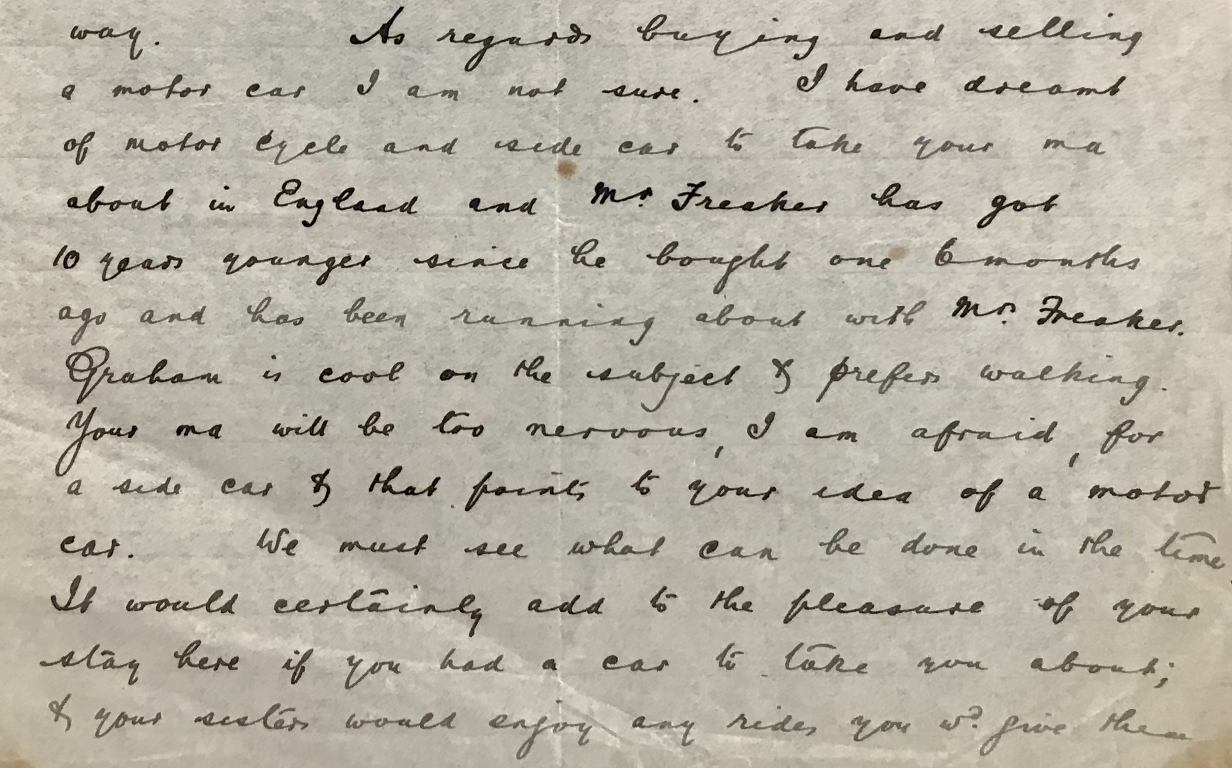 way. As regards buying and selling
a motor car I am not sure. I have dreamt
of motor cycle and side car to take your ma
about in England and Mr. Freaker has got
10 years younger since he bought one 6 months
ago and has been running about with Mrs. Freaker.
Graham is cool on the subject & prefers walking.
Your ma will be too nervous, I am afraid, for
a side car & that points to your idea of a motor
car. We must see what can be done in the time
It would certainly add to the pleasure of your
stay here if you had a car to take you about;
& your sisters would enjoy any rides you wd. give them